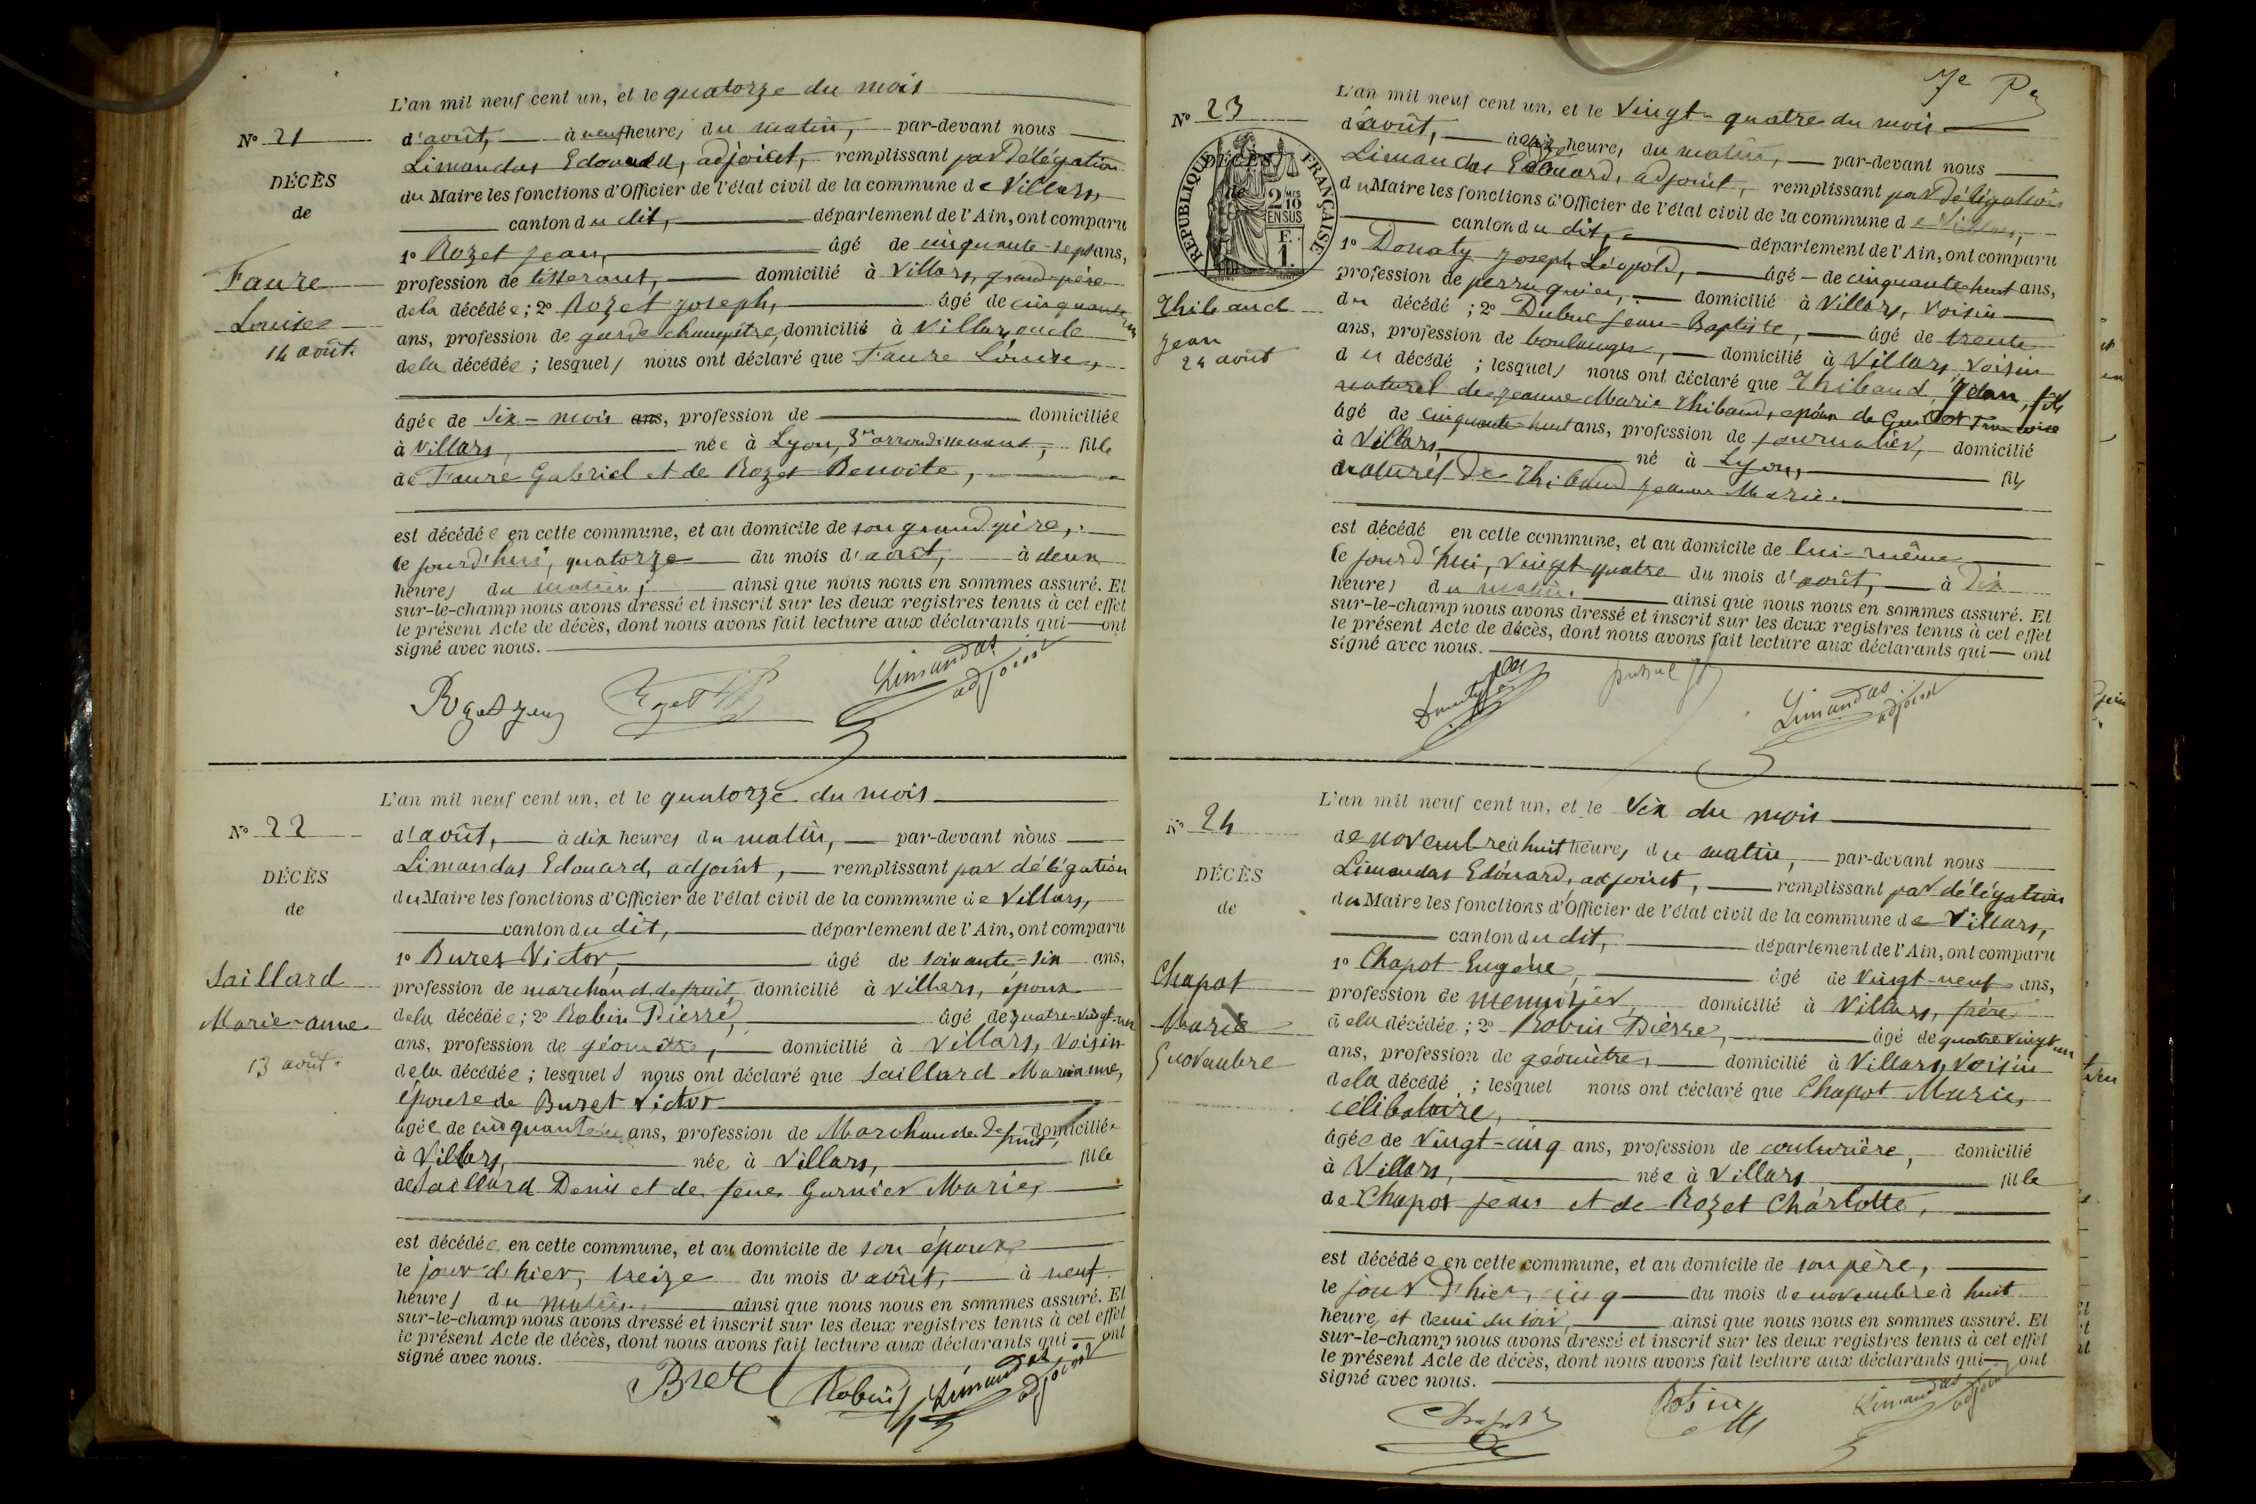 L'an mil neuf cent un, et le quatorze du mois
N° 21
d'août, à neuf heures du matin, par-devant nous
Limandas Edouard, adjoint, remplissant par Délégation
DÉCÈS
du Maire les fonctions d'Officier de l'état civil de la commune de Villars,
de
canton du dit, département de l'Ain, ont comparu
1° Rozet Jean, âgé de cinquante-sept ans,
Faure
profession de tisserant, domicilié à Villars, grand-père
Louise
de la décédée; 2° Rozet Joseph, âgé de cinquante
14 août.
ans, profession de garde champêtre, domicilié à Villars oncle
de la décédée; lesquels nous ont déclaré que Faure Louise,
âgée de six-mois ans, profession de domiciliée
à Villars, née à Lyon, 3me arrondissement, fille
de Faure Gabriel et de Rozet Benoite,
est décédée en cette commune, et au domicile de son grand père,
le jourd'hui, quatorze du mois d'août, à deux
heures du matin, ainsi que nous nous en sommes assuré. Et
sur-le-champ nous avons dressé et inscrit sur les deux registres tenus à cet effet
le présent Acte de décès, dont nous avons fait lecture aux déclarants qui ont
signé avec nous.
Rozet Jean Rozet Limandas adjoint
L'an mil neuf cent un, et le quatorze du mois
N° 22
d'août, à dix heures du matin, par-devant nous
Limandas Edouard, adjoint, remplissant par délégation
DÉCÈS
du Maire les fonctions d'Officier de l'état civil de la commune de Villars,
de
canton du dit, département de l'Ain, ont comparu
1° Buret Victor, âgé de soixante-six ans,
Saillard
profession de marchand de fruit, domicilié à Villars, époux
Marie-anne
de la décédée; 2° Robin Pierre, âgé de quatre-vingt-un
ans, profession de géomètre, domicilié à Villars, voisin
13 août.
de la décédée; lesquels nous ont déclaré que Saillard Marianne,
épouse de Buret Victor
âgée de cinquante ans, profession de Marchande de fruit, domiciliée
à Villars, née à Villars, fille
de Saillard Denis et de feue Garnier Marie,
est décédée en cette commune, et au domicile de son époux,
le jour d'hier, treize du mois d'août, à neuf
heures du matin, ainsi que nous nous en sommes assuré. Et
sur-le-champ nous avons dressé et inscrit sur les deux registres tenus à cet effet
le présent Acte de décès, dont nous avons fait lecture aux déclarants qui ont
signé avec nous.
Robin Limandas adjoint
7e
L'an mil neuf cent un, et le vingt-quatre du mois
N° 23
d'août, à onze heures du matin, par-devant nous
Limandas Edouard, adjoint, remplissant par délégation
DÉCÈS
de
RÉPUBLIQUE FRANÇAISE
2 10 MES
EN SUS
F.
1.
du Maire les fonctions d'Officier de l'état civil de la commune de Villars,
canton du dit, département de l'Ain, ont comparu
1° Donaty Joseph Léopold, âgé de cinquante huit ans,
Thibaud
profession de perruquier, domicilié à Villars, voisin
Jean
du décédé; 2° Dubuc Jean-Baptiste, âgé de trente
24 août
ans, profession de boulanger, domicilié à Villars, voisin
du décédé; lesquels nous ont déclaré que Thibaud Jean, fils
naturel de Jeanne Marie Thibaud, époux de
âgé de cinquante huit ans, profession de journalier, domicilié
à Villars, né à Lyon, fils
naturel de Thibaud Jeanne Marie.
est décédé en cette commune, et au domicile de lui-même
le jourd'hui, vingt-quatre du mois d'août, à dix
heures du matin. ainsi que nous nous en sommes assuré. Et
sur-le-champ nous avons dressé et inscrit sur les deux registres tenus à cet effet
le présent Acte de décès, dont nous avons fait lecture aux déclarants qui ont
signé avec nous.
Limandas adjoint
L'an mil neuf cent un, et le six du mois
N° 24
de novembre à huit heures du matin, par-devant nous
Limandas Edouard, adjoint, remplissant par délégation
DÉCÈS
du Maire les fonctions d'Officier de l'état civil de la commune de Villars,
de
canton du dit, département de l'Ain, ont comparu
1° Chapot Eugène, âgé de vingt-neuf ans,
Chapot
profession de menuisier, domicilié à Villars, frère
Marie
de la décédée; 2° Robin Pierre, âgé de quatre vingt un
5 novembre
ans, profession de géomètre, domicilié à Villars, voisin
de la décédé; lesquel nous ont déclaré que Chapot Marie,
célibataire,
âgée de vingt-cinq ans, profession de couturière, domicilié
à Villars, née à Villars, fille
de Chapot Jean et de Rozet Charlotte,
est décédée en cette commune, et au domicile de son père,
le jour d'hier, cinq du mois de novembre à huit
heure et demi du soir, ainsi que nous nous en sommes assuré. Et
sur-le-champ nous avons dressé et inscrit sur les deux registres tenus à cet effet
le présent Acte de décès, dont nous avons fait lecture aux déclarants qui ont
signé avec nous.
Chapot Robin Limandas adjoint